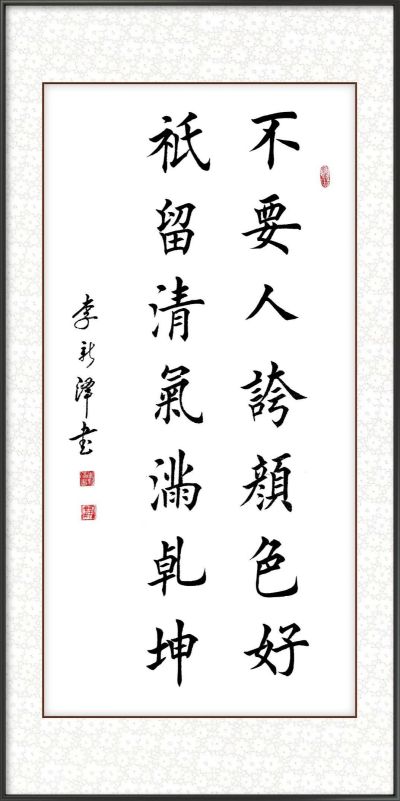 不要人誇顏色好
祇留清氣滿乾坤
李新澤書